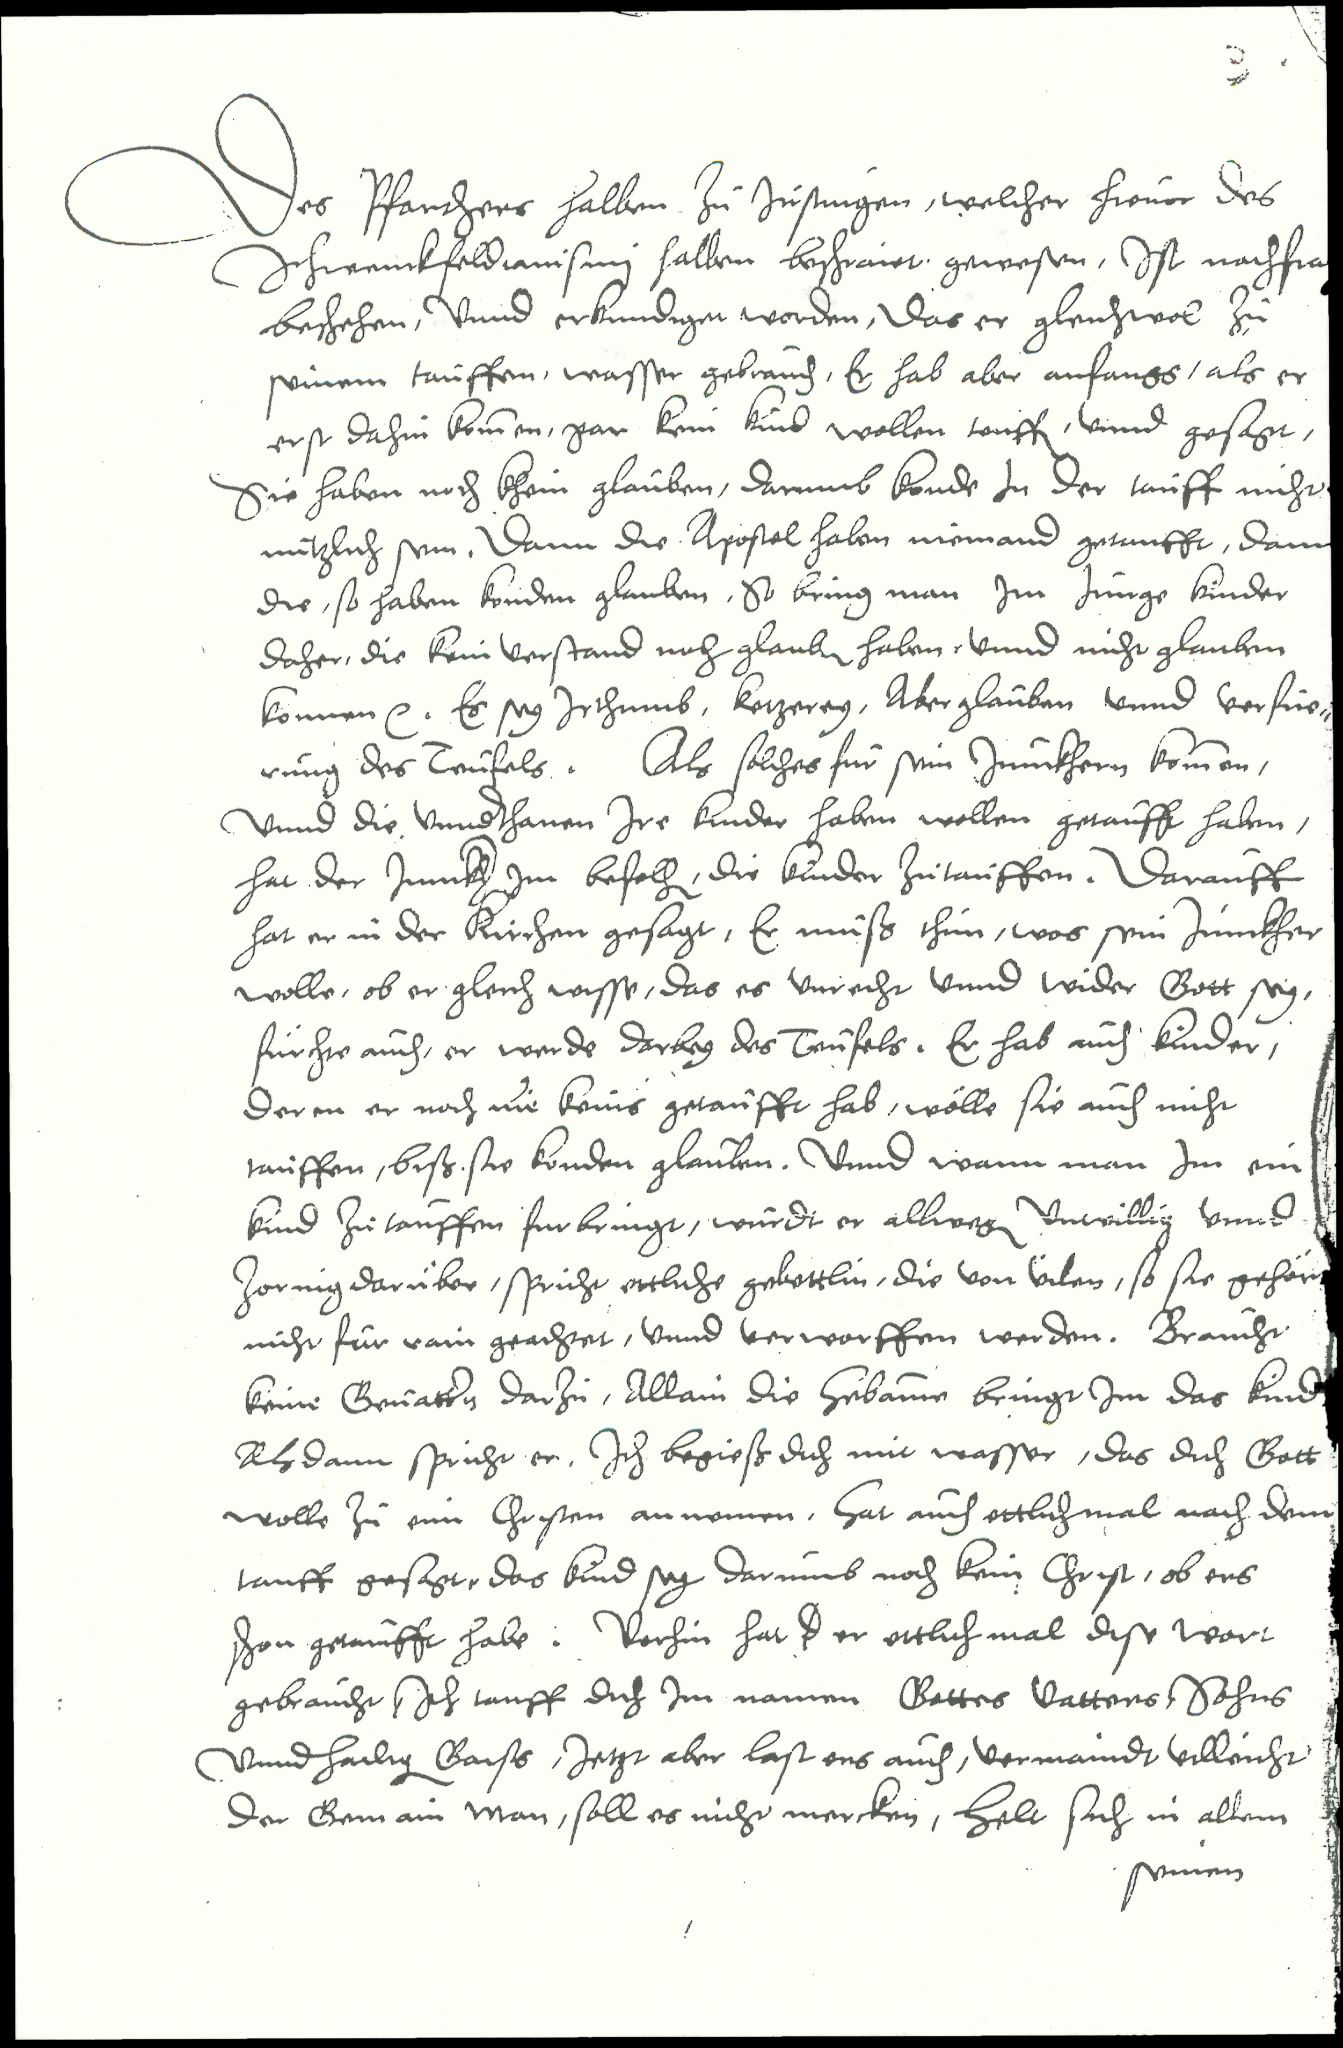 3
Des Pfarrhers halben zu Justingen, welcher hieuor des
Schwenckfeldianismj halben beschraiet gewesen, Ist nachfra
beschehen, Vnnd erkundiget worden, Das er gleichwol zu
seinem tauffen, wasser gebrauch, Er hab aber anfangs, als er
erst dahin komen, gar kein kind wollen tauffen, vnnd gesagt,
Sie haben noch khein glauben, darumb konde In der tauff nicht
nutzlich sein. Dann die Apostel haben niemand getaufft, dann
die, so haben konden glauben, So bring man Im Junge kinder
daher, die kein verstand noch glauben haben, vnnd nicht glauben
konnen etc. Es sey Irthumb, ketzerey, Aberglauben vnnd verfüe=
rung des Teufels. Als solches für sein Junckhern komen,
Vnnd die vnnderthanen Ire kinder haben wollen getaufft haben,
hat der Junckher Im befolhen, die kinder zutauffen. Darauff
hat er in der Kirchen gesagt, Er muß thun, was sein Junckher
wolle, ob er gleich wisse, das es vnrecht vnnd wider Gott sey,
fürchte auch, er werde darbey des Teufels. Er hab auch kinder,
deren er noch nie keins getaufft hab, wölle sie auch nicht
tauffen, biß sie konden glauben. Vnnd wann man Im ein
kind zu tauffen furbringt, würdt er allwegen Vnwillig vnnd
zornig darüber, spricht ettliche gebettlin, die von vilen, so sie gehört
nicht für rain geachtet, vnnd verworffen werden. Braucht
keine Geuattern darzu, Allain die Hebamme bringt Im das kind
Alsdann spricht er, Ich begieß dich mit wasser, das dich Gott
wolle zu eim Christen annemen. Hat auch ettlichmal nach dem
tauff gesagt, das kind sey darumb noch kein Christ, ob ers
schon getaufft habe. Vorhin hat er ettlich mal dise wort
gebraucht, Ich tauff dich Im namen Gottes Vatters, Sohns
Vnnd hailigen Gaists, Jetzt aber last ers auch, vermaindt villeicht
der Gemain Man, soll es nicht mercken, Helt sich in allem
seinen